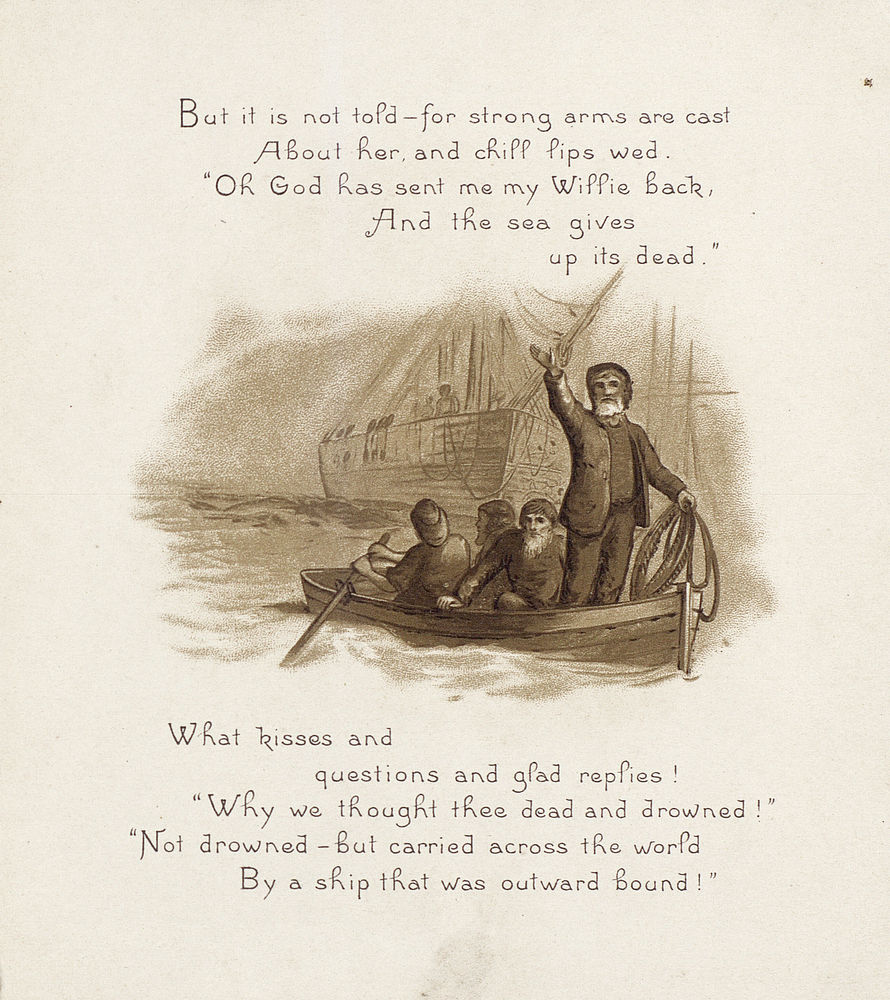 But it is not told – for strong arms are cast
About her, and chill lips wed.
"Oh God has sent me my Willie back,
And the sea gives
up its dead."
What kisses and
questions and glad replies!
"Why we thought thee dead and drowned!"
"Not drowned – but carried across the world
By a ship that was outward bound!"